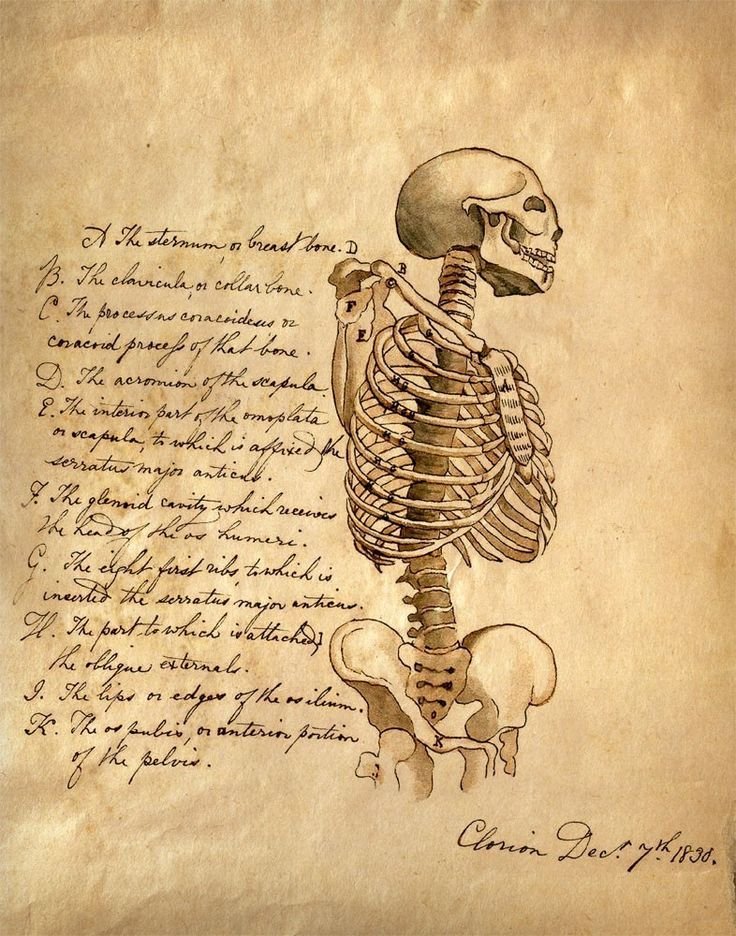 A The sternum, or breast bone.
B. The clavicula, or collar bone.
C. The processus coracoideus or
coracoid process of that bone.
D. The acromion of the scapula.
E. The interior part of the omoplata
or scapula, to which is affixed the
serratus major anticus.
F. The glenoid cavity which receives
the head of the os humeri.
G. The eight first ribs, to which is
inserted the serratus major anticus.
H. The part to which is attached
the oblique externals.
I. The lips or edges of the os ilium.
K. The os pubis, or anterior portion
of the pelvis.
D
B
C
F
E
G
G
A
H G
H G
H G
K
Clorion Decr. 7th. 1830.